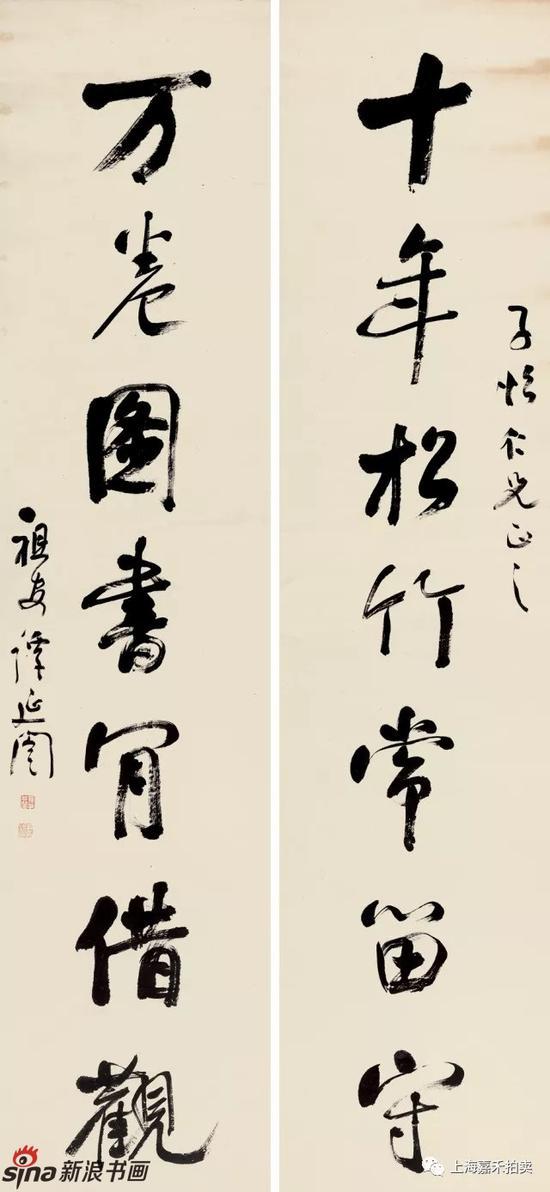 子怡仁兄正之
十年松竹常留守
万卷圖書肎借觀
祖安譚延闓
sina新浪书画
上海嘉禾拍卖